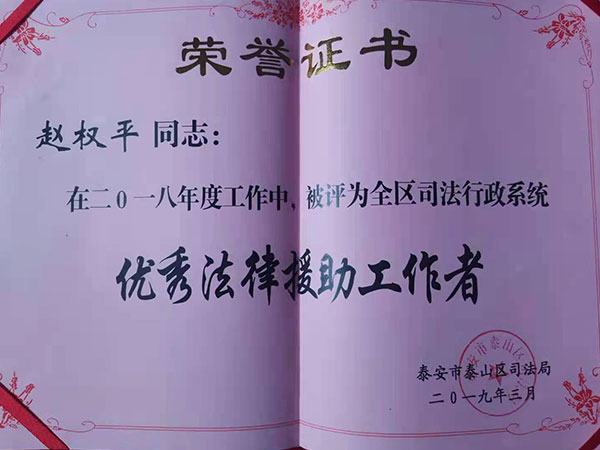 荣誉证书
赵权平 同志：
在二0一八年度工作中，被评为全区司法行政系统
优秀法律援助工作者
泰安市泰山区司法局
二0一九年三月